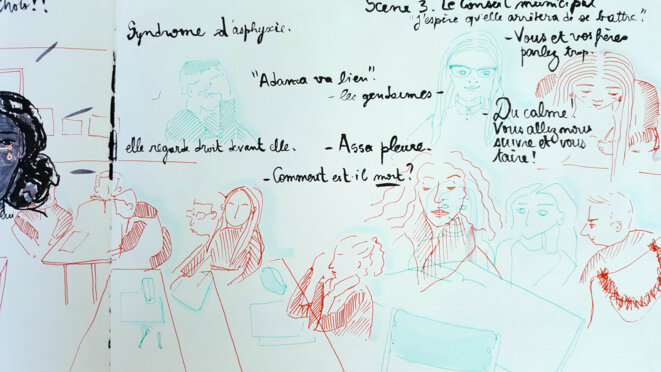 Choir!!
Scène 3. Le Conseil municipal
"J'espère qu'elle arrivera de se battre."
Syndrome d'asphyxie.
- Vous et vos frères
parlez trop.
"Adama va bien".
- les gendarmes -
- Du calme!
Vous allez nous
suivre et vous
taire!
elle regarde droit devant elle.
- Assa pleure.
- Comment est-il mort?